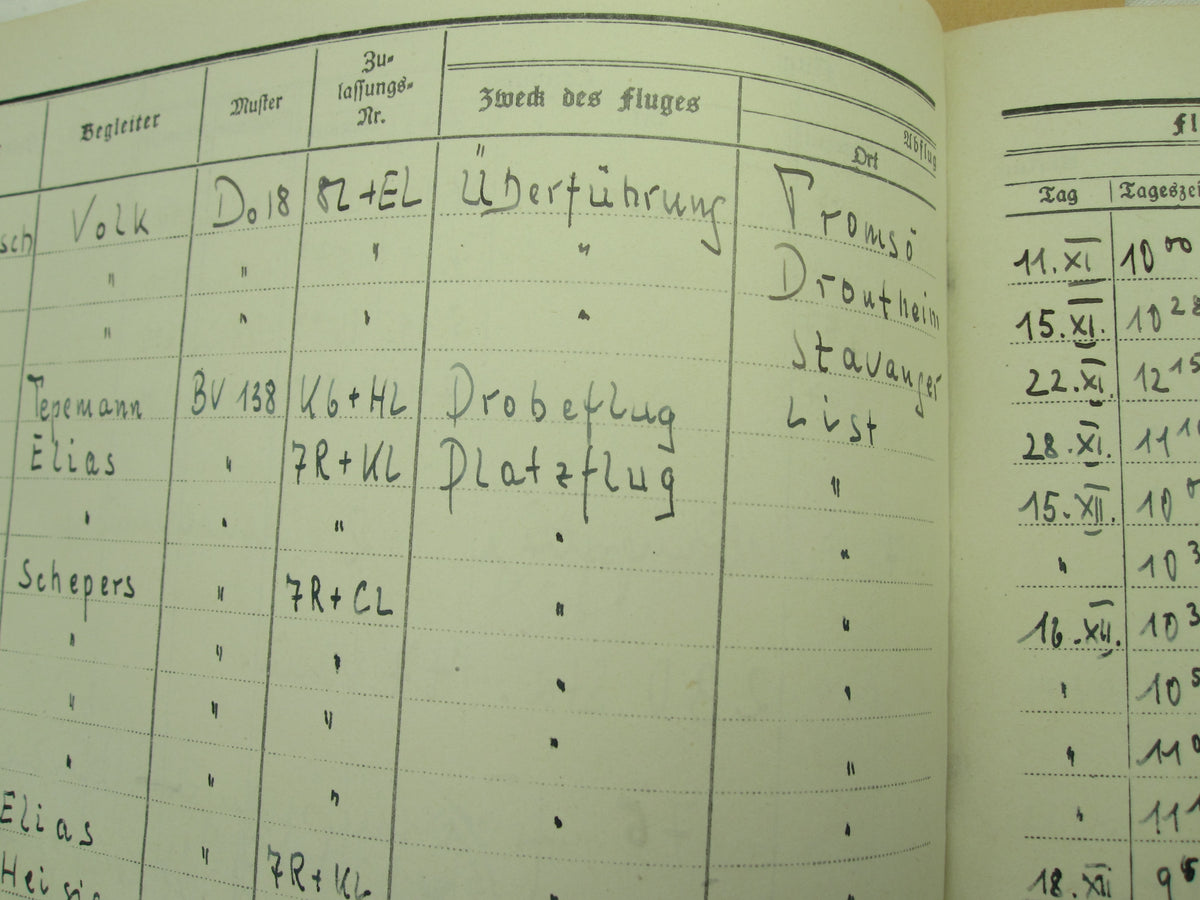 Begleiter Muster Zu-
lassungs-
Nr. Zweck des Fluges Abflug
Ort
sch Volk Do 18 8L+EL Überführung Tromsö
" " " " Drontheim
" " " " Stavanger
Tepemann BV 138 K6+HL Probeflug List
Elias " 7R+KL Platzflug "
" " " " "
Schepers " 7R+CL " "
" " " " "
" " " " "
" " " " "
Elias " 7R+KL "
Fl
Tag Tageszei
11. XI 10 00
15. XI. 10 28
22. XI. 12 15
28. XI. 11 1
15. XII. 10
" 10 3
16. XII. 10 3
" 10 5
" 11 0
" 11 1
18. XII 9